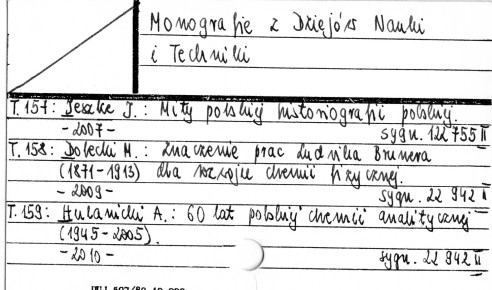 Monografie z Dziejów Nauki
i Techniki
T. 157: Jeszke J.: Mity polskiej historiografii polskiej.
- 2007 - sygn. 122 755 II
T. 158: Dolecki M.: Znaczenie prac Ludwika Brunera
(1871-1913) dla rozwoju chemii fizycznej.
- 2009 - sygn. 22 942 II
T. 159: Hulanicki A.: 60 lat polskiej chemii analitycznej
(1945-2005).
- 2010 - sygn. 22 942 II